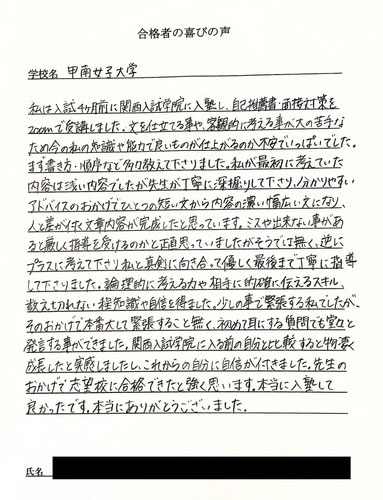 合格者の喜びの声
学校名 甲南女子大学
私は入試4ヶ月前に関西入試学院に入塾し、自己推薦書・面接対策を
zoomで受講しました。文を仕立てる事や、客観的に考える事が大の苦手な
ため今の私の知識や能力で良いものが仕上がるのか不安でいっぱいでした。
まず書き方・順序など多々教えて下さりました。私が最初に考えていた
内容は浅い内容でしたが先生が丁寧に深掘りして下さり、分かりやすい
アドバイスのおかげでひとつの短い文から内容の濃い幅広い文になり、
人と差が付く文章内容が完成したと思っています。ミスや出来ない事があ
ると厳しく指導を受けるのかと正直思っていましたがそうでは無く、逆に
プラスに考えて下さり私と真剣に向き合って優しく最後まで丁寧に指導
して下さりました。論理的に考える力や相手に的確に伝えるスキル、
数えた切れない程知識や自信を得ました。少しの事で緊張する私でしたが、
そのおかげで本番大して緊張すること無く、初めて耳にする質問でも堂々と
発言する事ができました。関西入試学院に入る前の自分と比較すると物凄く
成長したと実感しましたし、これからの自分に自信が付きました。先生の
おかげで志望校に合格できたと強く思います。本当に入塾して
良かったです。本当にありがとうございました。
氏名